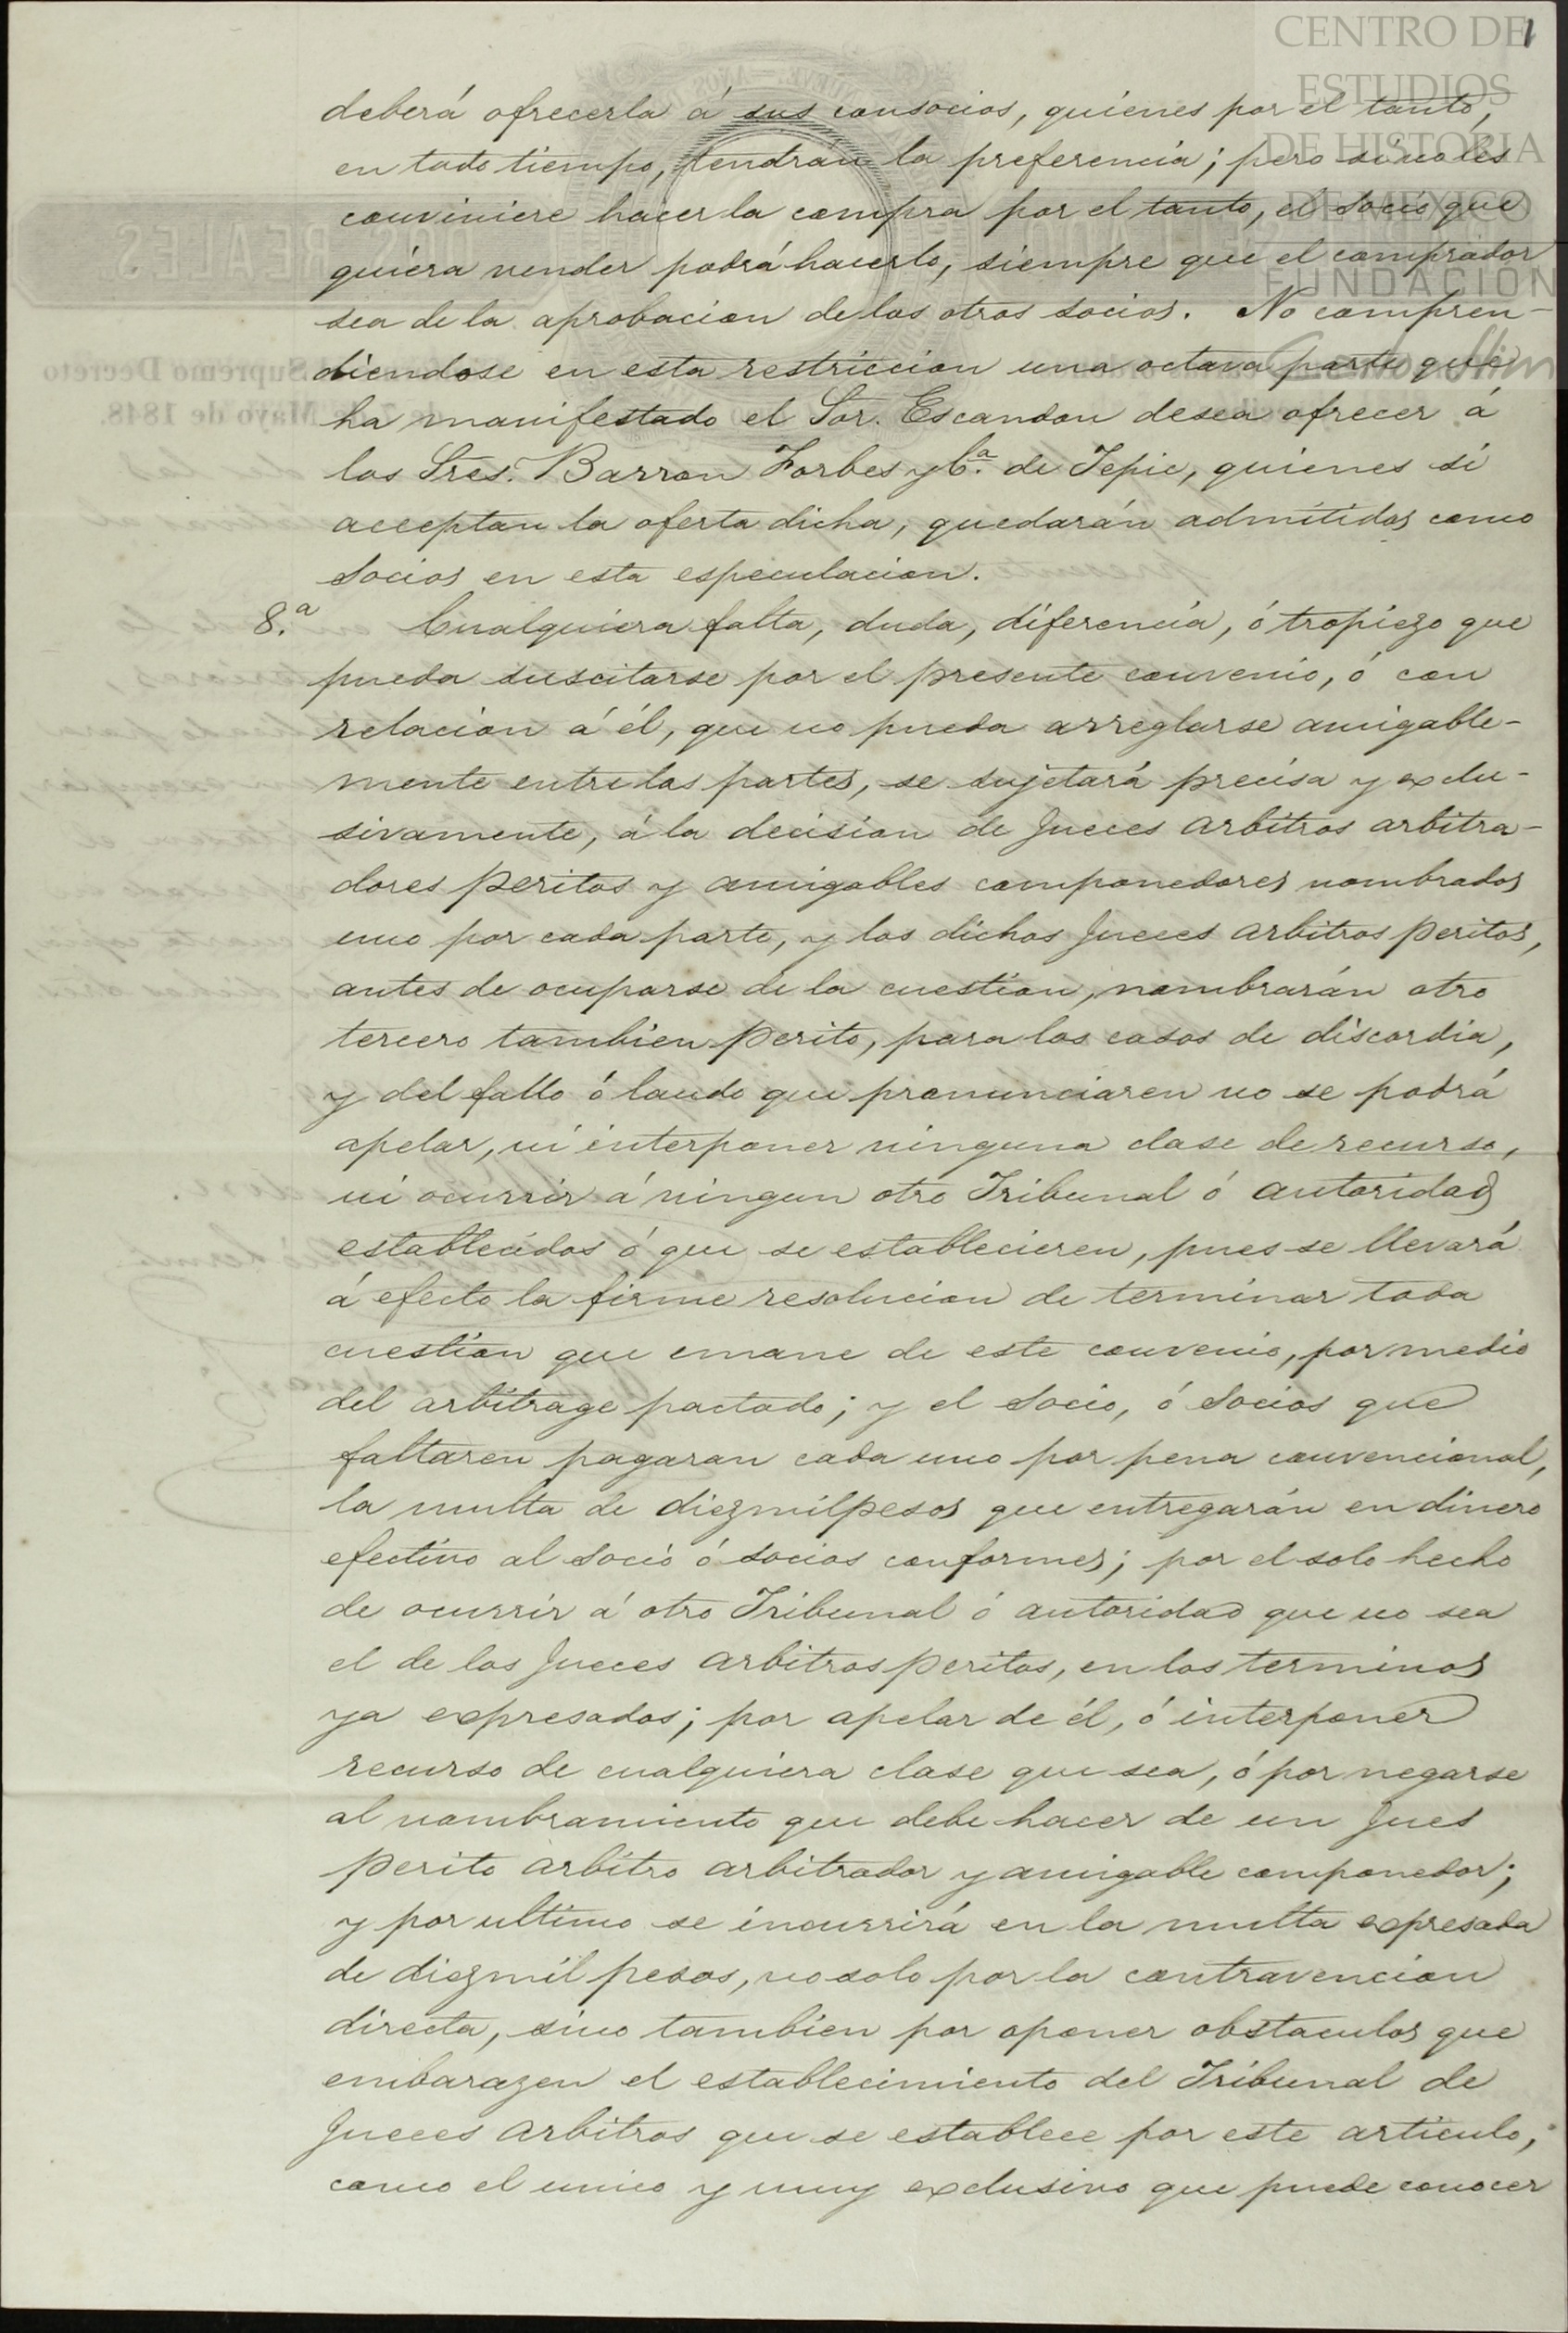 CENTRO DE
ESTUDIOS
DE HISTORIA
DE MÉXICO
FUNDACIÓN
1
deberá ofrecerla á sus consocios, quienes por el tanto,
en todo tiempo, tendrán la preferencia; pero si no les
conviniere hacer la compra por el tanto, el Socio que
quiera vender podrá hacerlo, siempre que el comprador
sea de la aprobacion de los otros socios. No compren-
diendose en esta restriccion una octava parte que
ha manifestado el Sor. Escandon desea ofrecer á
los Sres. Barron Forbes y Cª. de Tepic, quienes si
acceptan la oferta dicha, quedarán admitidos como
Socios en esta especulacion.
8.ª Cualquiera falta, duda, diferencia, ó tropiezo que
pueda suscitarse por el presente convenio, ó con
relacion á él, que no pueda arreglarse amigable-
mente entre las partes, se sujetará precisa y exclu-
sivamente, á la decision de Jueces arbitros arbitra-
dores peritos y amigables componedores nombrados
uno por cada parte, y los dichos Jueces arbitros peritos,
antes de ocuparse de la cuestion, nombrarán otro
tercero tambien perito, para los casos de discordia,
y del fallo ó laudo que pronunciaren no se podrá
apelar, ni interponer ninguna clase de recurso,
ni ocurrir á ningun otro Tribunal ó autoridad
establecidos ó que se establecieren, pues se llevará
á efecto la firme resolucion de terminar toda
cuestion que emane de este convenio, por medio
del arbitrage pactado; y el Socio, ó Socios que
faltaren pagaran cada uno por pena convencional,
la multa de diezmilpesos que entregarán en dinero
efectivo al Socio ó Socios conformes; por el solo hecho
de ocurrir á otro Tribunal ó autoridad que no sea
el de los Jueces arbitros peritos, en los terminos
ya expresados; por apelar de él, ó interponer
recurso de cualquiera clase que sea, ó por negarse
al nombramiento que debe hacer de un Jues
perito arbitro arbitrador y amigable componedor;
y por ultimo se incurrirá en la multa expresada
de diezmil pesos, no solo por la contravencion
directa, sino tambien por oponer obstaculos que
embarazen el establecimiento del Tribunal de
Jueces arbitros que se establece por este articulo,
como el unico y muy exclusivo que puede conocer